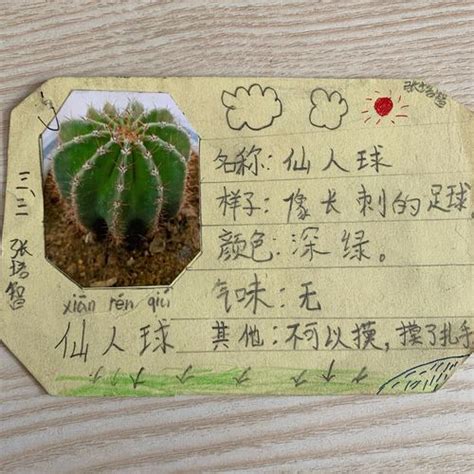 名称:仙人球
样子:像长刺的足球
颜色:深绿。
气味:无
其他:不可以摸,摸了扎手
xiān rén qiú
仙人球
三、三